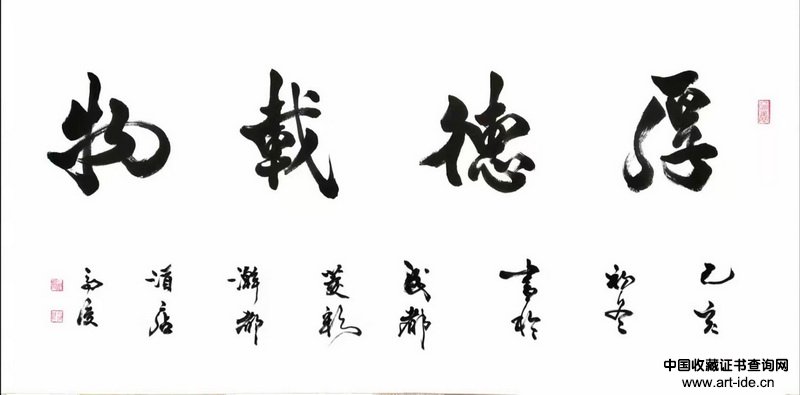 厚德載物
己亥
初冬
書於
成都
酒店
中国收藏证书查询网
www.art-ide.cn